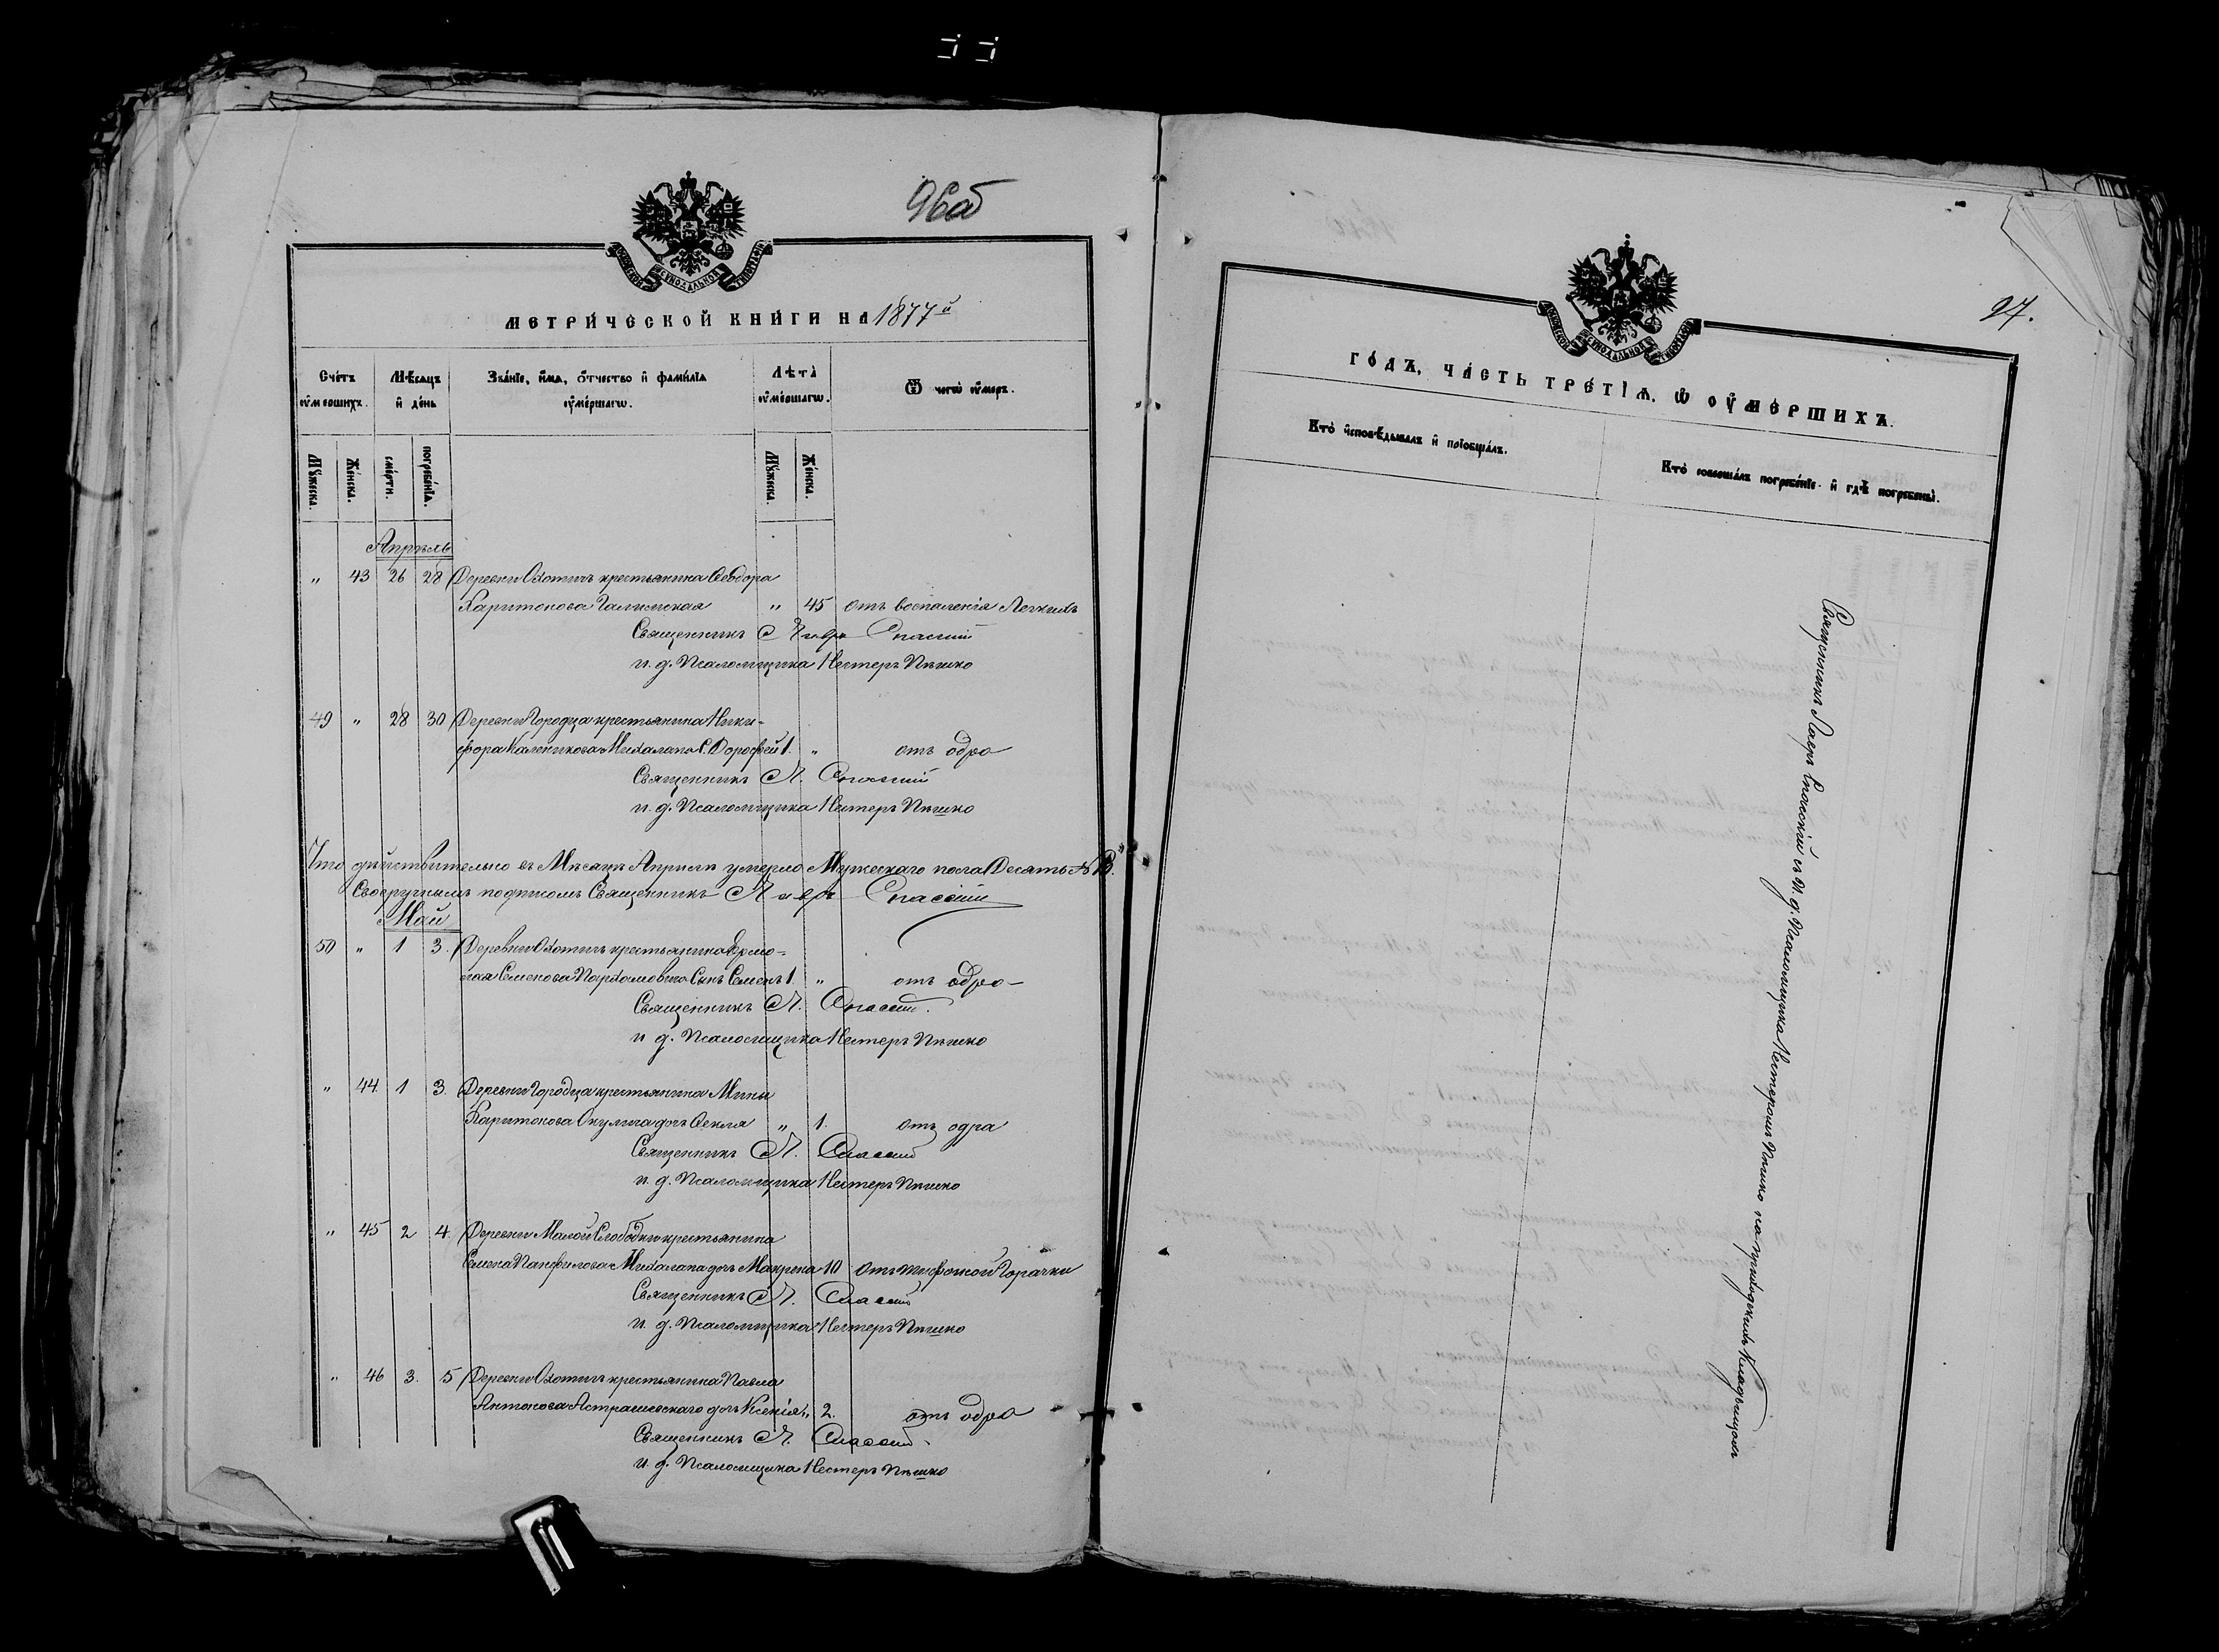 96об
МЕТРИЧЕСКОЙ КНИГИ НА 1877й
Счетъ оумершихъ.
Мѣсяцъ и день
Званіе, имя, отчество и фамилія оумершагѡ.
Лѣта оумершагѡ.
Ѿ чегѡ оумеръ.
Мꙋжеска.
Женска.
смерти.
погребенія.
Мꙋжеска.
Женска.
Апрѣль
" 43 26 28 Деревни Охотичъ крестьянина Ѳеодора
Харитонова " 45 отъ воспаленія Легкихъ
Священникъ Лавръ Спасскій
и. д. Псаломщика Нестеръ Пѣшко
49 " 28 30 Деревни Городца крестьянина Ники-
фора Каленикова Михалапа С. Дорофей 1. " отъ одра
Священникъ Л. Спасскій
и. д. Псаломщика Нестеръ Пѣшко
Что дѣйствительно въ Мѣсяцѣ Апрѣлѣ умерло Мужескаго пола Десять
Священникъ Лавръ Спасскій
Май
50 " 1 3. Деревни Охотичъ крестьянина Ермо-
лая Семенова Пархомовича Сынъ Семенъ 1. " отъ одра
Священникъ Л. Спасскій.
и д. Псаломщика Нестеръ Пѣшко
" 44 1 3. Деревни Городца крестьянина Мины
Харитонова Окулича дочь Ѳекла " 1. отъ одра
Священникъ Л. Спасскій
и. д. Псаломщика Нестеръ Пѣшко
" 45 2 4. Деревни Малой Слободки крестьянина
Семена Панфилова Михалапа дочь Макрена 10 отъ тифозной Горячки
Священникъ Л. Спасскій
и. д. Псаломщика Нестеръ Пѣшко
" 46 3. 5 Деревни Охотичъ крестьянина Павла
Антонова Астрашевскаго дочь Ксенія " 2. отъ одра
Священникъ Л. Спасскій
и. д. Псаломщика Нестеръ Пѣшко
27.
ГОДЪ, ЧАСТЬ ТРЕТІѦ, Ѡ ОУМЕРШИХЪ.
Кто исповѣдывалъ и пріобщалъ.
Кто совершалъ погребеніе и гдѣ погребены.
Священникъ Лавръ Спасскій съ И. д. Псаломщика Нестеромъ Пѣшко на приходскихъ Кладбищахъ